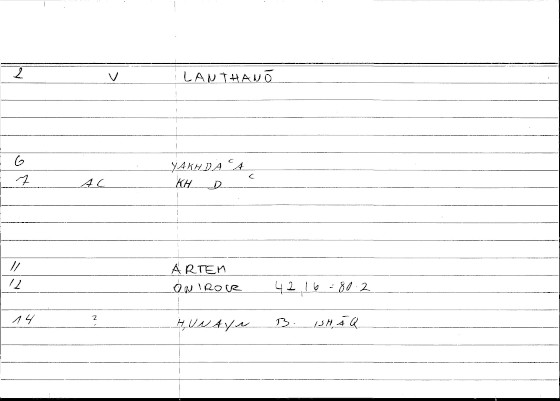 2 V LANTHANŌ
6 YAKHDAᶜA
7 AC KH D ᶜ
11 ARTEM
12 ONIROCR 42,16 = 80.2
14 ? H,UNAYN B. ISH,ĀQ